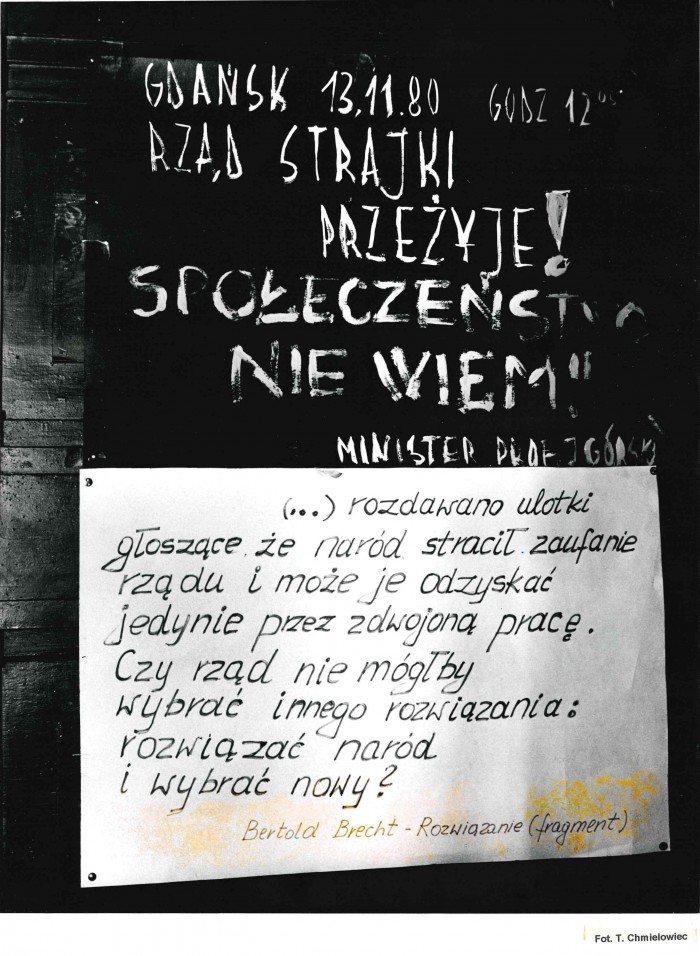 GDAŃSK 13.11.80 GODZ 12⁰⁰
RZĄD STRAJKI
PRZEŻYJE!
SPOŁECZEŃSTWO
NIE WIEM!!
MINISTER PROF. J GÓRSKI
(...) rozdawano ulotki
głoszące, że naród stracił zaufanie
rządu i może je odzyskać
jedynie przez zdwojoną pracę.
Czy rząd nie mógłby
wybrać innego rozwiązania:
rozwiązać naród
i wybrać nowy?
Bertold Brecht - Rozwiązanie (fragment)
Fot. T. Chmielowiec